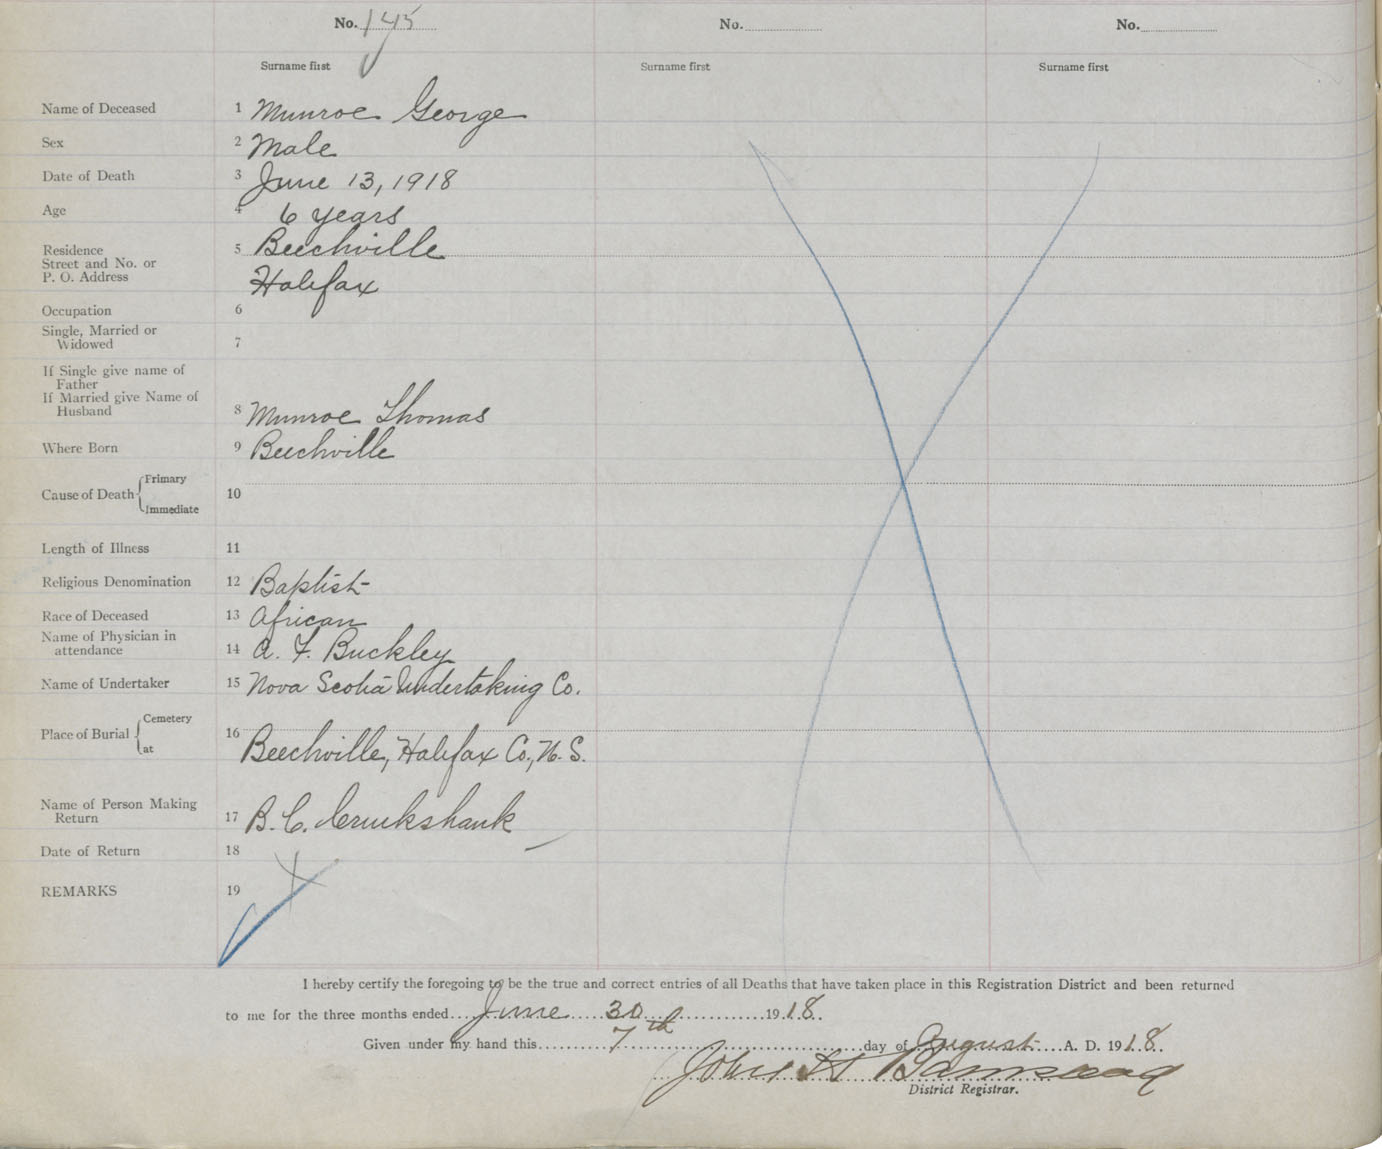 No. 145 No. No.
Surname first Surname first Surname first
Name of Deceased 1 Munroe George
Sex 2 Male
Date of Death 3 June 13, 1918
Age 4 6 years
Residence 5 Beechville
Street and No. or
P. O. Address Halifax
Occupation 6
Single, Married or
Widowed 7
If Single give name of
Father
If Married give Name of
Husband 8 Munroe Thomas
Where Born 9 Beechville
Cause of Death { Primary
10
Immediate
Length of Illness 11
Religious Denomination 12 Baptist
Race of Deceased 13 African
Name of Physician in
attendance 14 A. F. Buckley
Name of Undertaker 15 Nova Scotia Undertaking Co.
Place of Burial { Cemetery 16
at Beechville, Halifax Co., N. S.
Name of Person Making
Return 17 B. C. Cruikshank
Date of Return 18
REMARKS 19
I hereby certify the foregoing to be the true and correct entries of all Deaths that have taken place in this Registration District and been returned
to me for the three months ended June 30 1918.
Given under my hand this 7th day of August A. D. 1918.
John H
District Registrar.